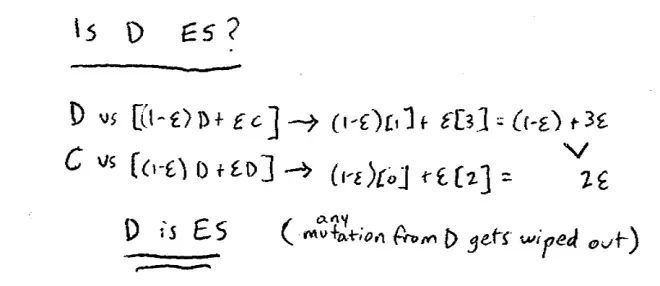 Is D ES?
D vs [(1-ε)D + εC] → (1-ε)[1] + ε[3] = (1-ε) + 3ε
∨
C vs [(1-ε)D + εD] → (1-ε)[0] + ε[2] = 2ε
D is ES (any mutation from D gets wiped out)